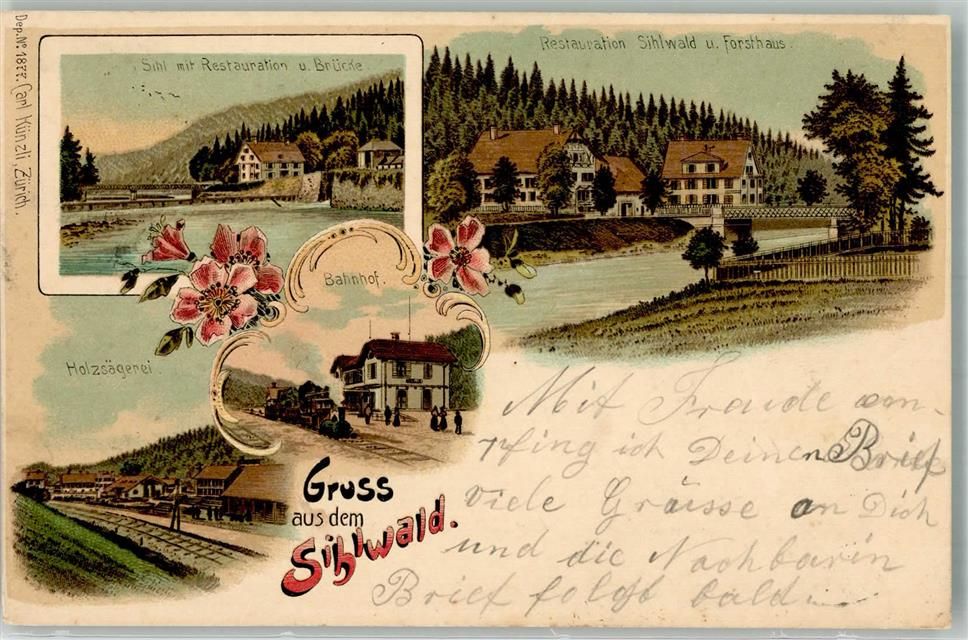 Dep. No. 1877. Carl Künzli, Zürich.
Sihl mit Restauration u. Brücke.
Restauration Sihlwald u. Forsthaus.
Bahnhof.
Holzsägerei.
Gruss
aus dem
Sihlwald.
Mit Fraude em-
pfing ich Deinen Brief
viele Grüsse an Dich
und die Nachbarin
Brief folgt bald....